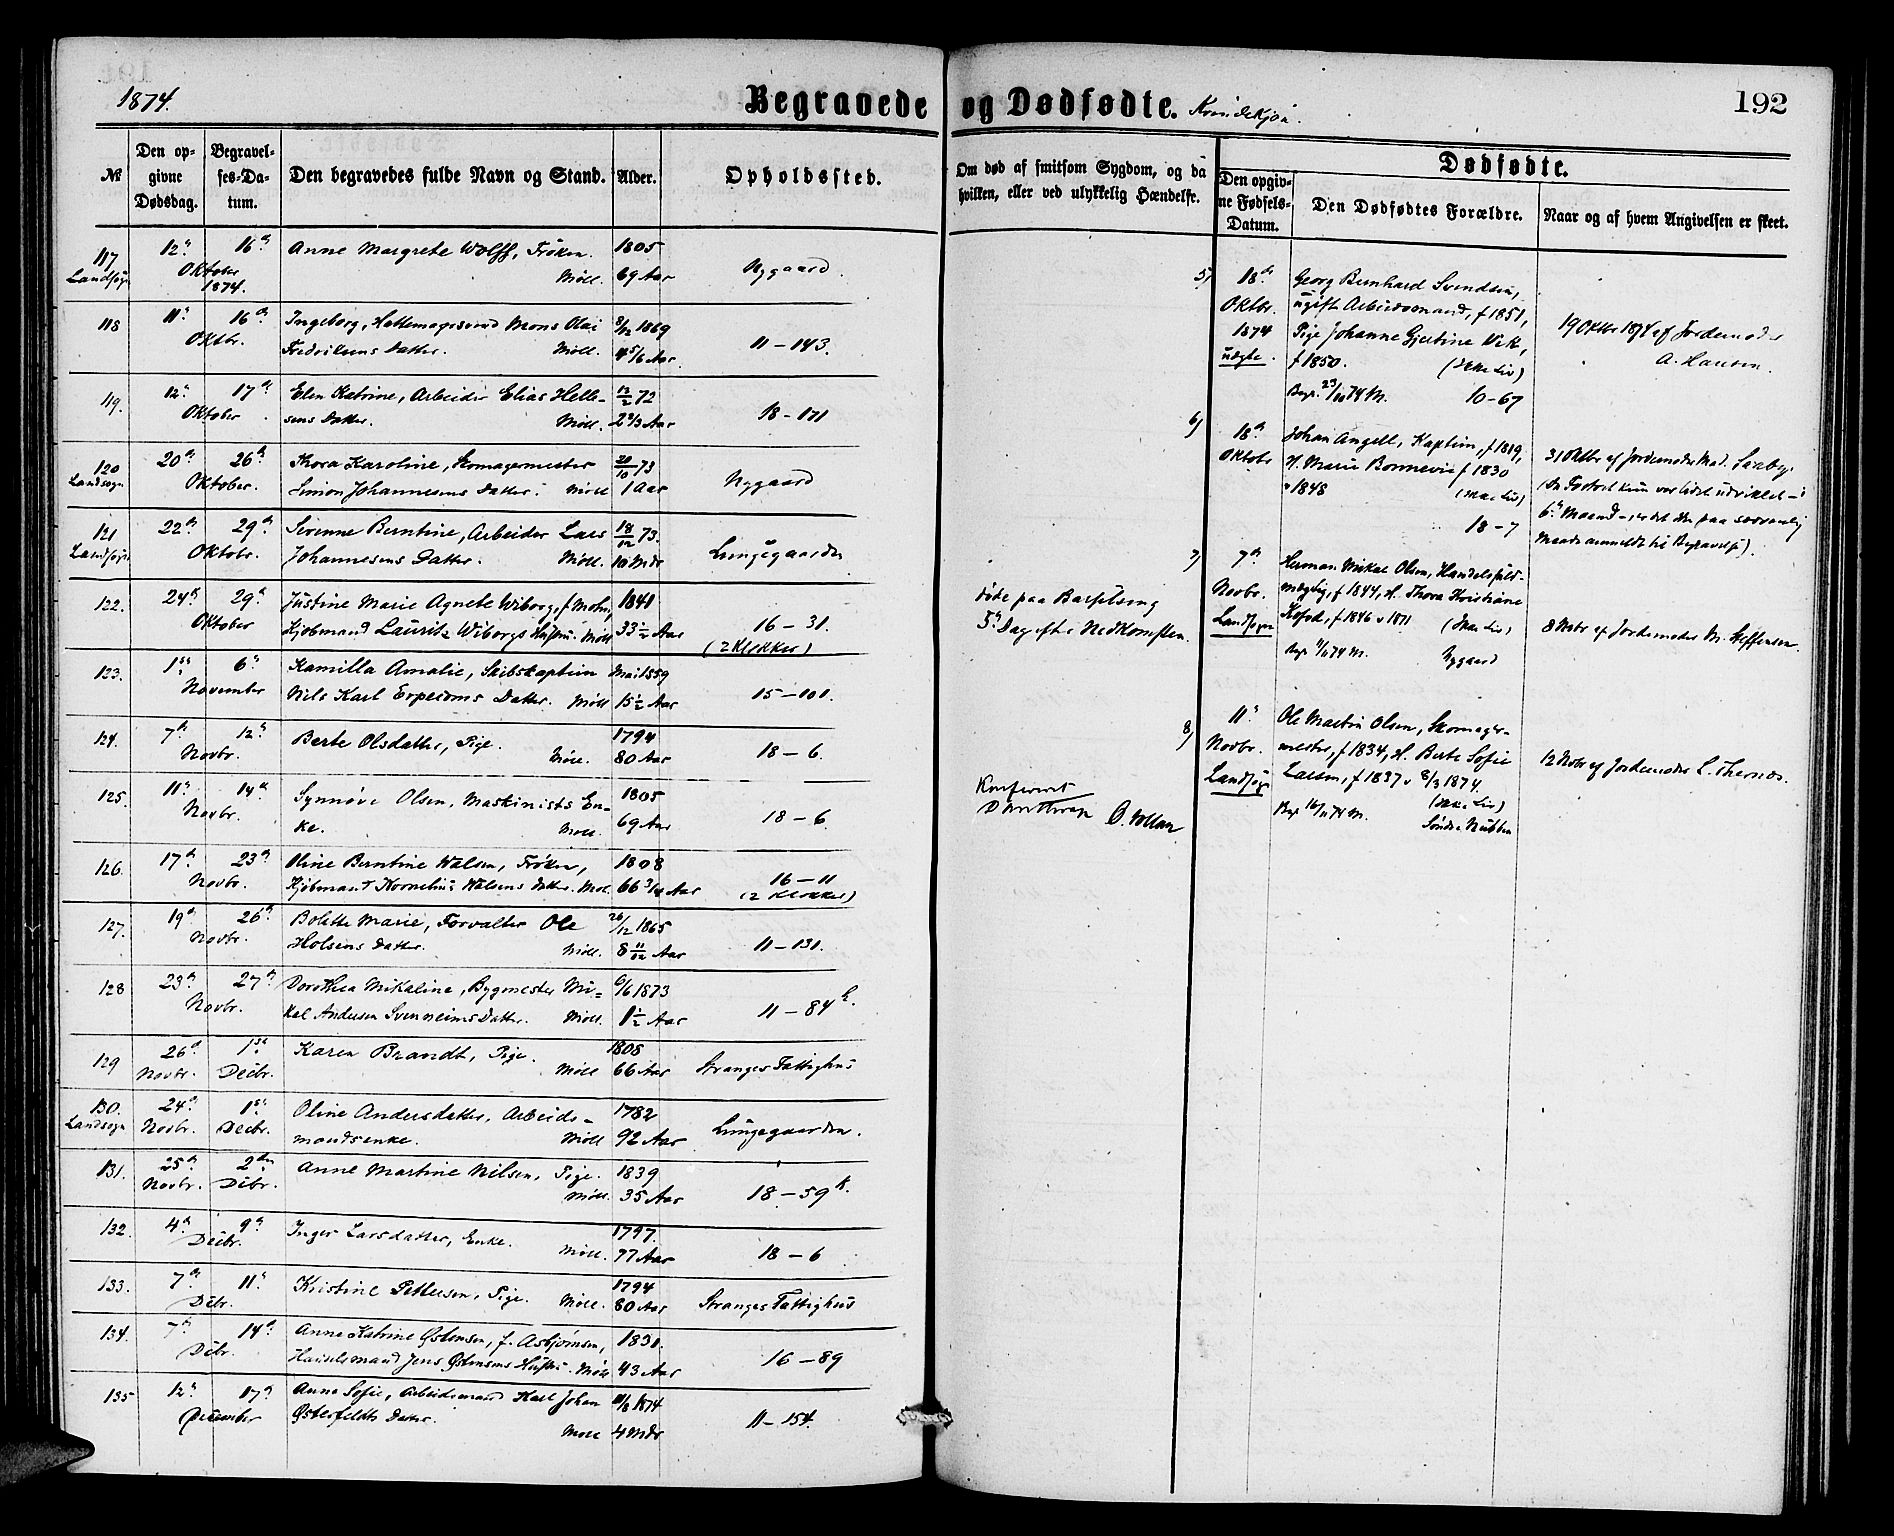 1874.
Begravede og Dødfødte. Kvindekjøn.
192
No.
Den opgivne Dødsdag.
Begravelses-Datum.
Den begravedes fulde Navn og Stand.
Alder.
Opholdssted.
Om død af smitsom Sygdom, og da hvilken, eller ved ulykkelig Hændelse.
Dødfødte.
Den opgivne Fødsels-Datum.
Den Dødfødtes Forældre.
Naar og af hvem Angivelsen er skeet.
117 12te 16de Anne Margrete Wolff, Frøken. 1805
Landsogn Oktober 1874. Møll. 69 Aar Nygaard.
118 11te 16de Ingeborg, Hattemagersvend Mons Olai 8/12 1869
Oktbr. Fredriksens Datter. Møll. 4 5/6 Aar 11 – 143.
119. 12te 17de Elen Katrine, Arbeider Elias Helle- 12/2 72
Oktober sens Datter. Møll. 2 2/3 Aar 18 – 171
120 20de 26de Thora Karoline, Skomagermester 20/10 73
Landsogn Oktober. Simon Johannesens Datter. Møll 1 Aar Nygaard
121 22de 29de Serenne Berntine, Arbeider Lars 18/12 73.
Landsogn Oktobr. Johannesens Datter. Møll. 10 Mdr Lungegaarden
122. 24de 29de Justine Marie Agnete Wiborg, f. Mohn, 1841
Oktober Kjøbmand Lauritz Wiborgs Hustru. Møll 33 1/2 Aar 16 – 31.
(2 Klokker)
døde paa Barselseng
5te Dag efter Nedkomsten.
123. 1ste 6te Kamilla Amalie, Skibskaptein Mai 1859
November Nils Karl Erpecoms Datter. Møll 15 1/2 Aar 15 – 101.
124. 7de 12te Berte Olsdatter, Pige. 1794
Novbr. Møll. 80 Aar 18 – 6.
125. 11te 14de Synnøve Olsen, Maskinists En- 1805
Novbr. ke. Møll. 69 Aar 18 – 6.
Konfereret
O. Vollan
126. 17de 23de Oline Berntine Walsen, Frøken, 1808
Novbr. Kjøbmand Kornelius Walsens Datter. Møl. 66 Aar 16 – 11
(2 Klokker)
127. 19de 26de Bolette Marie, Forvalter Ole 26/12 1865
Novbr. Holsens Datter. Møll. 8 11/12 Aar 11 – 131.
128 23de 27de Dorothea Mikaline, Bygmester Mi- 6/6 1873
Novbr. kal Andersen Svenheims Datter. Møll. 1 1/2 Aar 11 – 84
129 26de 1ste Karen Brandt, Pige. 1808
Novbr. Decbr. Møll 66 Aar Stranges Fattighus
130. 24de 1ste Oline Andersdatter, Arbeids- 1782
Landsogn Novbr. Decbr. mandsenke. Møll 92 Aar Lungegaarden.
131. 25de 2den Anne Martine Nilsen, Pige. 1839
Novbr. Decbr. Møll. 35 Aar 18 – 59 k.
132. 4de 9de Inger Larsdatter, Enke. 1797.
Decbr. Møll. 77 Aar 18 – 6
133. 7de 11te Kristine Pettersen, Pige. 1794
Decbr. Møll. 80 Aar Stranges Fattighus
134. 7de 14de Anne Katrine Østensen, f. Asbjørnsen, 1831.
Decbr. Handelsmand Jens Østensens Hustru. Møll 43 Aar 16 – 89
135 12te 17de Anna Sofie, Arbeidsmand Karl Johan 1874
December Østerfeldts Datter. Møll 4 Mdr 11 – 154.
5) 18de Georg Bernhard Svendsen,
Oktbr. ugift Arbeidsmand, f 1851,
1874 Pige Johanne Gjertine Vik,
uægte. f 1850. (Ikke Liv)
Begr. 23/10 74 M. 10 – 67
19 Oktbr 1874 af Jordemoder
A. Hansen.
6) 18de Johan Angell, Kaptein, f 1819,
Oktobr H. Marie Bonnevie f 1830
v 1848 (Ikke Liv)
18 – 7
31 Oktbr af Jordemoder Mad. Saaby
(Da Fostret kun var lidet udviklet – i
6te Maaned – er det ikke paa sædvanlig
Maade anmeldt til Begravelse).
7) 7de Herman Mikal Olsen, Handelsfuld-
Novbr. mægtig, f 1844, H. Thora Kristiane
Landsogn Kofod, f 1846 v 1871 (Ikke Liv)
Begr. 11/11 74 M. Nygaard
8 Novbr af Jordemoder M. Steffensen.
8) 11te Ole Martin Olsen, Skomager-
Novbr. mester, f 1834, H. Berte Sofie
Landsogn Larsen, f 1837 v 8/3 1874.
(Ikke Liv)
Begr 16/11 74 M. Søndre Nubben
12 Novbr af Jordemoder L. Thernøe.